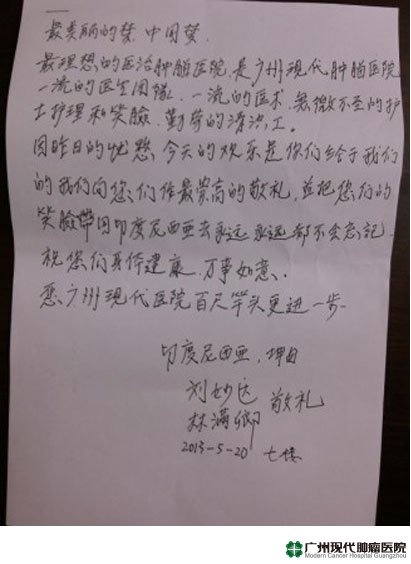 最美丽的梦 中国梦.
最理想的医治肿瘤医院,是广州现代肿瘤医院
一流的医生团队.一流的医术.無微不至的护
士护理和笑臉.勤劳的清洁工.
因昨日的忧愁,今天的欢乐是你们给于我们
的我们向您们作最崇高的敬礼,並把您们的
笑臉带回印度尼西亜去永远永远都不会忘記.
祝您们身体建康.万事如意.
愿广州现代医院百尺竿头更进一步.
印度尼西亜.坤甸
刘妙达
林满卿 敬礼
2013-5-20 七楼
广州现代肿瘤医院
Modern Cancer Hospital Guangzhou